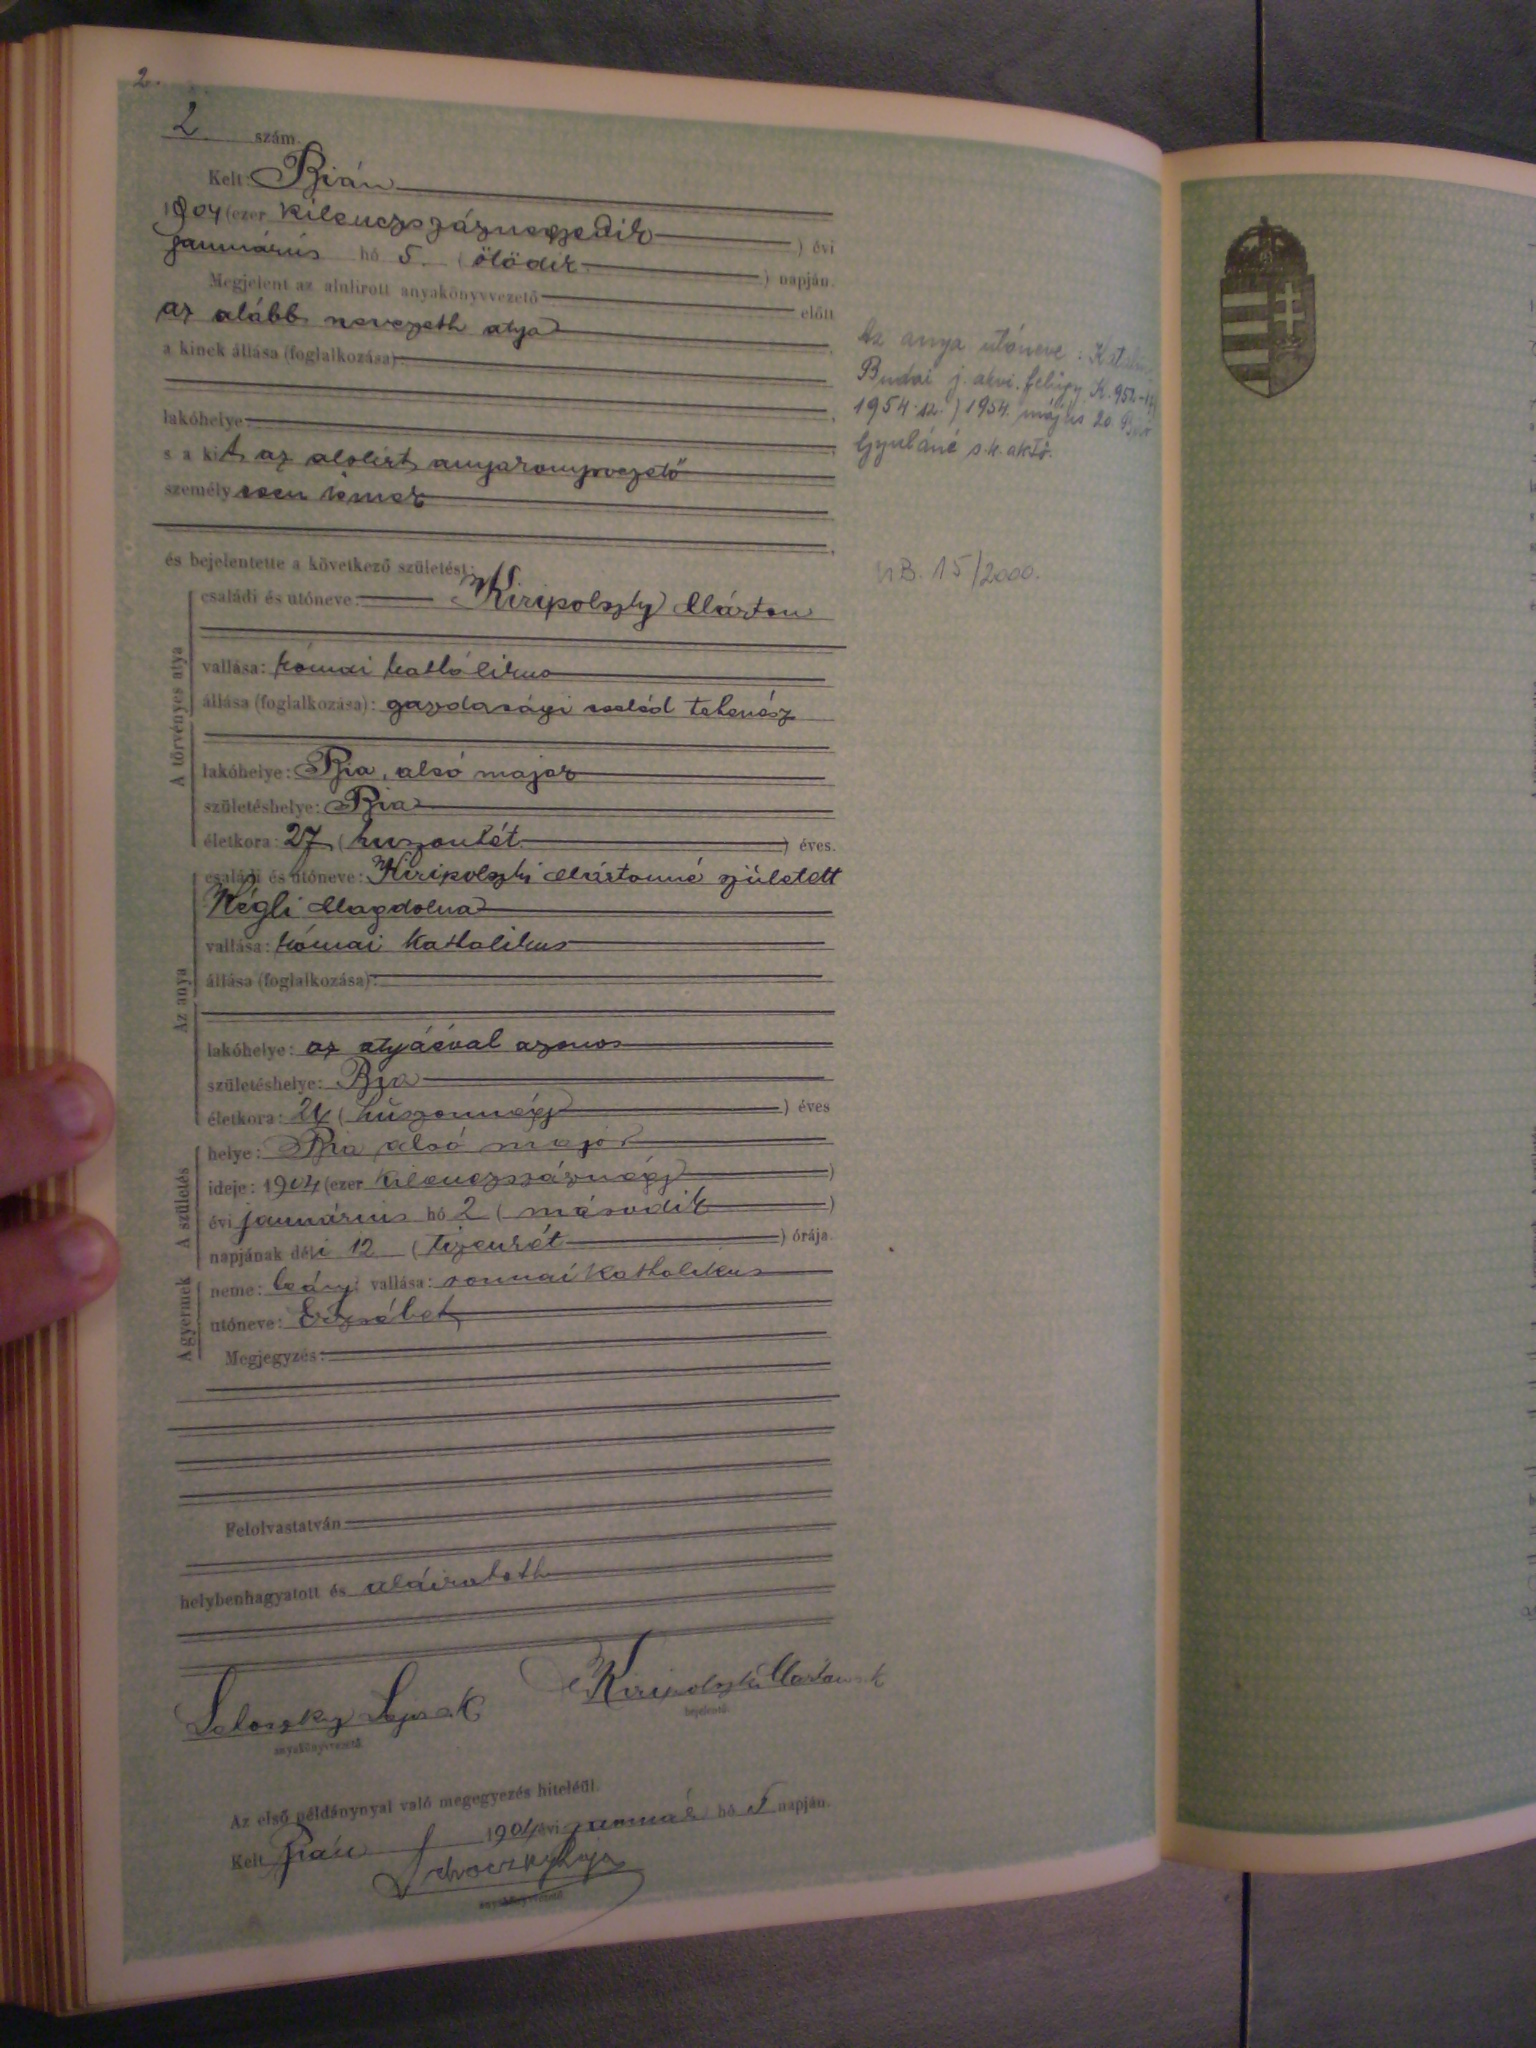 2.
2 szám.
Kelt Bián
1904 (ezer kilenczszáznegyedik ) évi
januárius hó 5. ( ötödik ) napján.
Megjelent az alulirott anyakönyvvezető előtt
az alább nevezett atya ,
a kinek állása (foglalkozása)
,
lakóhelye ,
s a kit az alolirt anyakönyvvezető
személyesen ismer
,
és bejelentette a következő születést:
A törvényes atya
családi és utóneve: Kiripolszky Márton
vallása: római katholikus
állása (foglalkozása): gazdasági cseléd tehenész
lakóhelye: Bia, alsó major
születéshelye: Bia
életkora: 27 ( huszonhét ) éves.
Az anya
családi és utóneve: Kiripolszki Mártonné született
Kégli Magdolna
vallása: római katholikus
állása (foglalkozása):
lakóhelye: az atyáéval azonos
születéshelye: Bia
életkora: 24 ( huszonnégy ) éves
A születés
helye: Bia alsó major
ideje: 1904 (ezer kilenczszáznégy )
évi januárius hó 2 ( második )
napjának déli 12 ( tizenkét ) órája.
A gyermek
neme: leány; vallása: romai katholikus
utóneve: Erzsébet
Megjegyzés:
Felolvastatván
helybenhagyatott és aláiratott
Kiripolszki Márton
anyakönyvvezető.
bejelentő.
Az első példánynyal való megegyezés hiteléül.
Kelt Bián 1904 évi január hó 5 napján.
anyakönyvvezető.
Az anya utóneve: Katalin
Budai j. akvi. felügy. K. 952-
1954. 12. ) 1954. május 20.
Gyuláné s.k. akv.
15/2000.